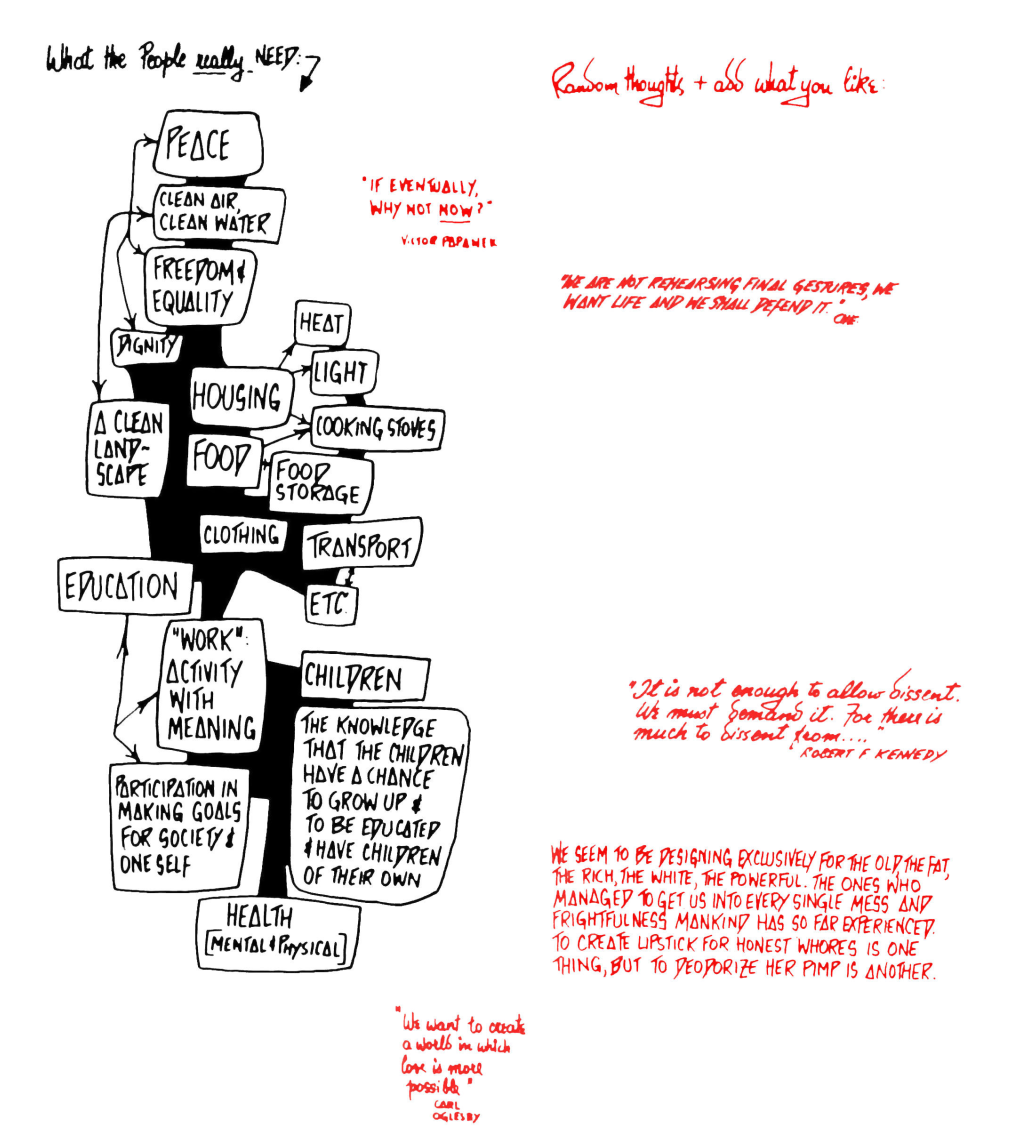 What the People really NEED:
PEACE
CLEAN AIR,
CLEAN WATER
FREEDOM &
EQUALITY
DIGNITY
HEAT
LIGHT
HOUSING
A CLEAN
LAND-
SCAPE
COOKING STOVES
FOOD
FOOD
STORAGE
CLOTHING
TRANSPORT
EDUCATION
ETC.
"WORK":
ACTIVITY
WITH
MEANING
CHILDREN
THE KNOWLEDGE
THAT THE CHILDREN
HAVE A CHANCE
TO GROW UP &
TO BE EDUCATED
& HAVE CHILDREN
OF THEIR OWN
PARTICIPATION IN
MAKING GOALS
FOR SOCIETY &
ONE SELF
HEALTH
[MENTAL & PHYSICAL]
Random thoughts + add what you like:
"IF EVENTUALLY,
WHY NOT NOW?"
VICTOR PAPANEK
"WE ARE NOT REHEARSING FINAL GESTURES, WE
WANT LIFE AND WE SHALL DEFEND IT."
CHE
"It is not enough to allow dissent.
We must demand it. For there is
much to dissent from...."
ROBERT F KENNEDY
WE SEEM TO BE DESIGNING EXCLUSIVELY FOR THE OLD, THE FAT,
THE RICH, THE WHITE, THE POWERFUL. THE ONES WHO
MANAGED TO GET US INTO EVERY SINGLE MESS AND
FRIGHTFULNESS MANKIND HAS SO FAR EXPERIENCED.
TO CREATE LIPSTICK FOR HONEST WHORES IS ONE
THING, BUT TO DEODORIZE HER PIMP IS ANOTHER.
"We want to create
a world in which
love is more
possible"
CARL
OGLESBY